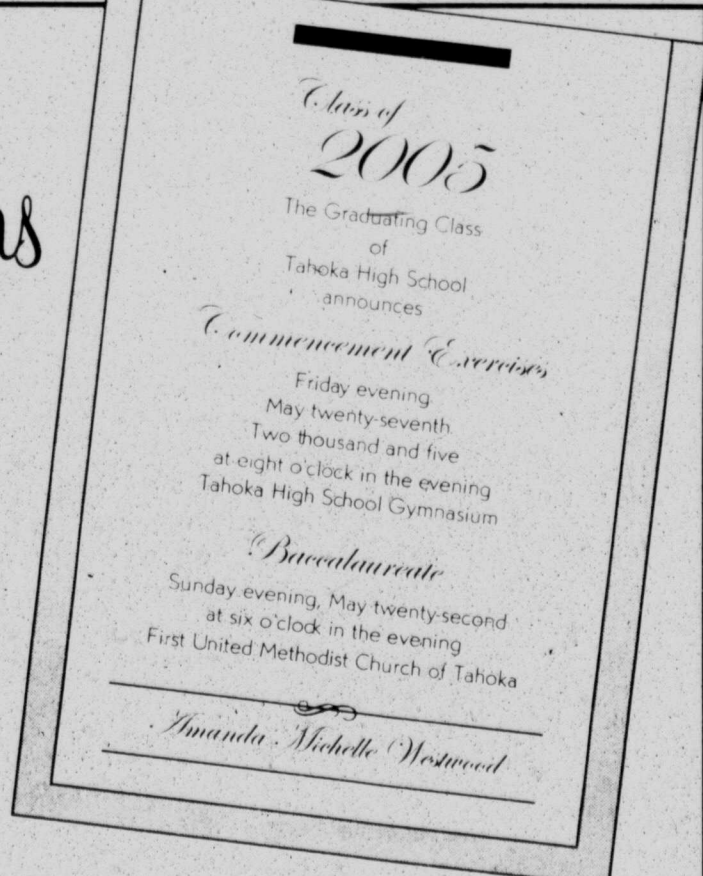 Class of
2005
The Graduating Class
of
Tahoka High School
announces
Commencement Exercises
Friday evening
May twenty-seventh
Two thousand and five
at eight o'clock in the evening
Tahoka High School Gymnasium
Baccalaureate
Sunday evening, May twenty-second
at six o'clock in the evening
First United Methodist Church of Tahoka
Amanda Michelle Westwood